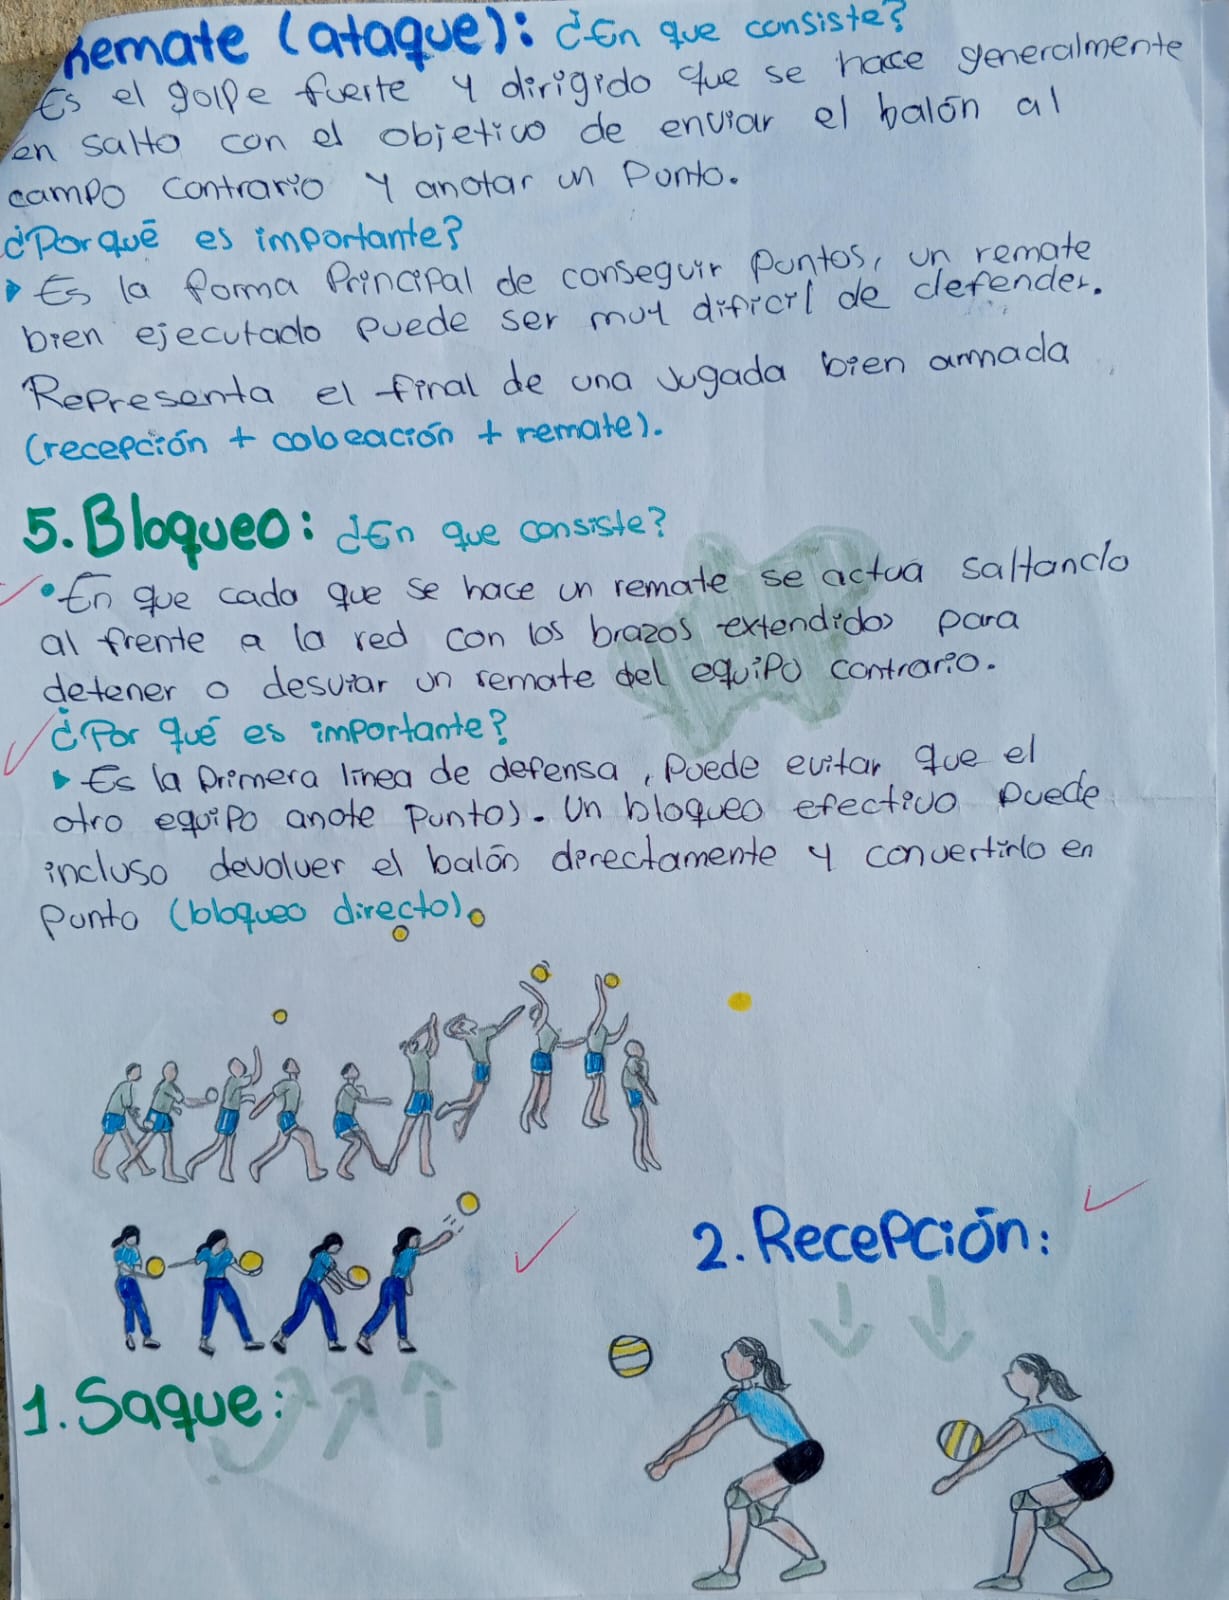 Remate (ataque): ¿En que consiste?
Es el golpe fuerte y dirigido que se hace generalmente
en salto con el objetivo de enviar el balón al
campo contrario y anotar un Punto.
¿Porqué es importante?
Es la forma Principal de conseguir puntos, un remate
bien ejecutado puede ser muy dificil de defender.
Representa el final de una Jugada bien armada
(recepción + colocación + remate).
5. Bloqueo: ¿En que consiste?
• En que cada que se hace un remate se actua saltando
al frente a la red con los brazos extendidos para
detener o desviar un remate del equipo contrario.
¿Por qué es importante?
Es la primera línea de defensa, Puede evitar que el
otro equipo anote puntos. Un bloqueo efectivo puede
incluso devolver el balón directamente y convertirlo en
punto (bloqueo directo).
2. Recepción:
1. Saque: